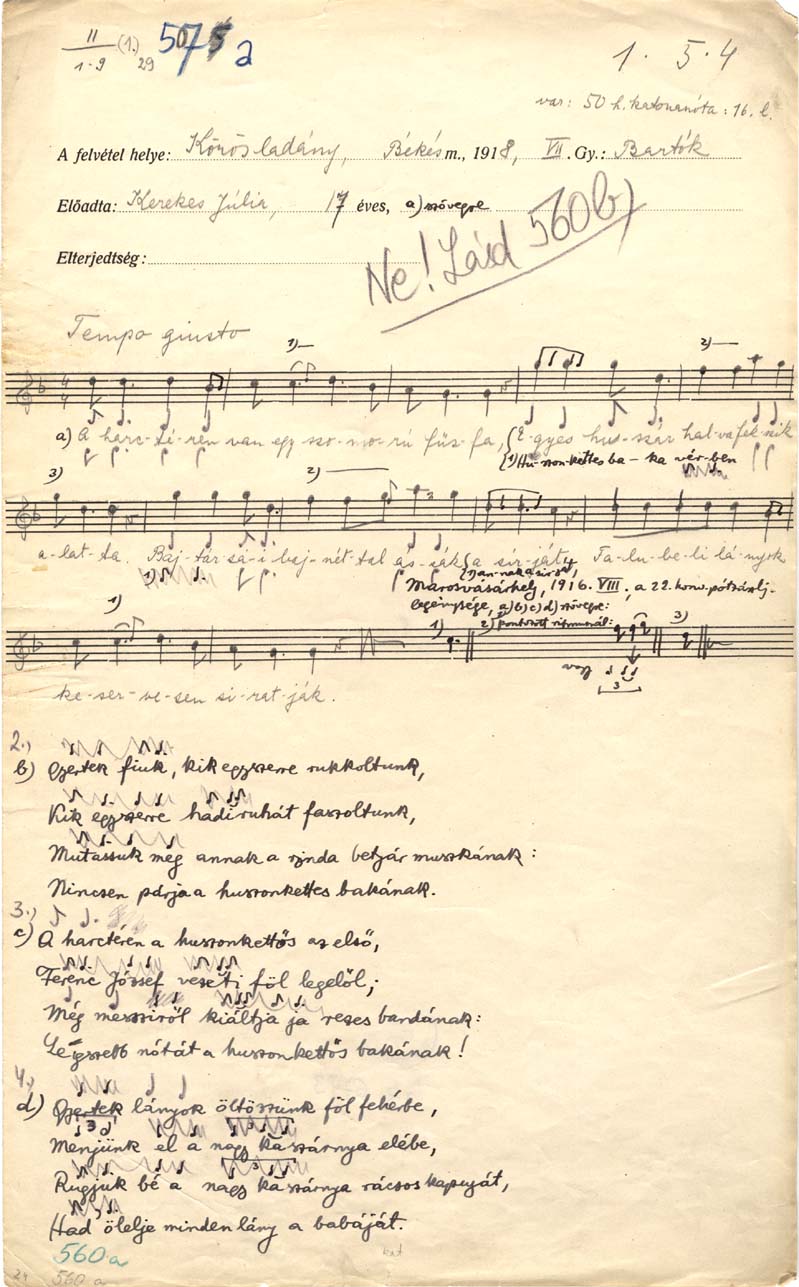 II
1-9 (1.) 29 507 a
1. 5. 4
var: 50 h. katonanóta: 16. l.
A felvétel helye: Körösladány, Békés m., 1918, VII. Gy.: Bartók
Előadta: Kerekes Júlia, 17 éves, a) szövegre
Ne! Lásd 560b)
Elterjedtség:
Tempo giusto
1) 2)
a) A harc-té-ren van egy szo-mo-rú fűz-fa, E-gyes hus-szár hal-va fek-szik
1) Hu-szon-kettes ba-ka vér-ben
3) 2)
a-lat-ta. Baj-tár-sa-i baj-nét-tal ás-sák a sír-ját, Fa-lu-be-li lá-nyok
1) an-nak a sír-ját,
Marosvásárhely, 1916. VIII., a 22. honv. pótzászlj.
legénysége, a) b) c) d) szövegre:
1) 1) 2) pontozott ritmusnál: 3)
vagy
3
ke-ser-ve-sen si-rat-ják.
2.,
b) Gyertek fiuk, kik egyszerre rukkoltunk,
Kik egyszerre hadiruhát faszoltunk,
Mutassuk még annak a rinda betyár muszkának:
Nincsen párja a huszonkettes bakának.
3.,
c) A harctéren a huszonkettős az első,
Ferenc József vezeti föl legelől;
Még messziről kiáltja ja rezes bandának:
Légszebb nótát a huszonkettős bakának!
4.,
d) Gyertek lányok öltözzünk föl fehérbe,
3 3
Menjünk el a nagy kaszárnya elébe,
3
Rugjuk bé a nagy kaszárnya rácsos kapuját,
Had ölelje minden lány a babáját.
560a
24 560 a